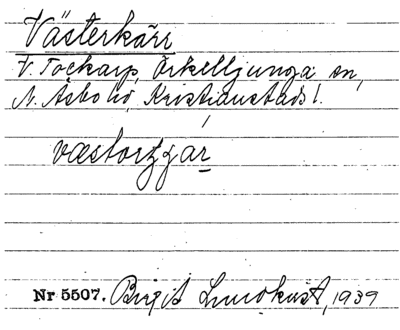 Västerkärr
V. Tockarp, Örkelljunga sn,
N. Åsbo hd, Kristianstads l.
Nr 5507. Birgit Lundkvist, 1939